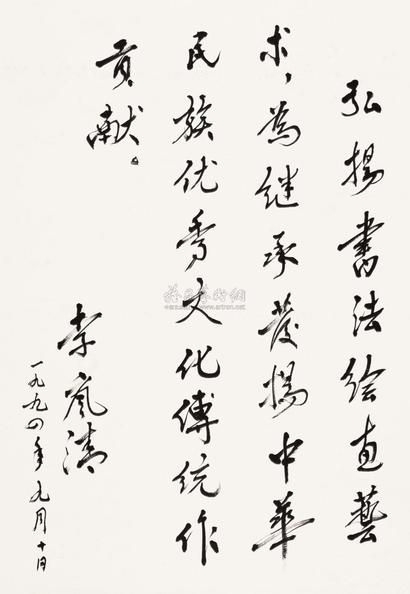 弘揚書法绘画藝
术，為继承發揚中華
民族优秀文化傳統作
贡献。
李岚清
一九九四年九月十日
雅昌藝術網
www.artron.net